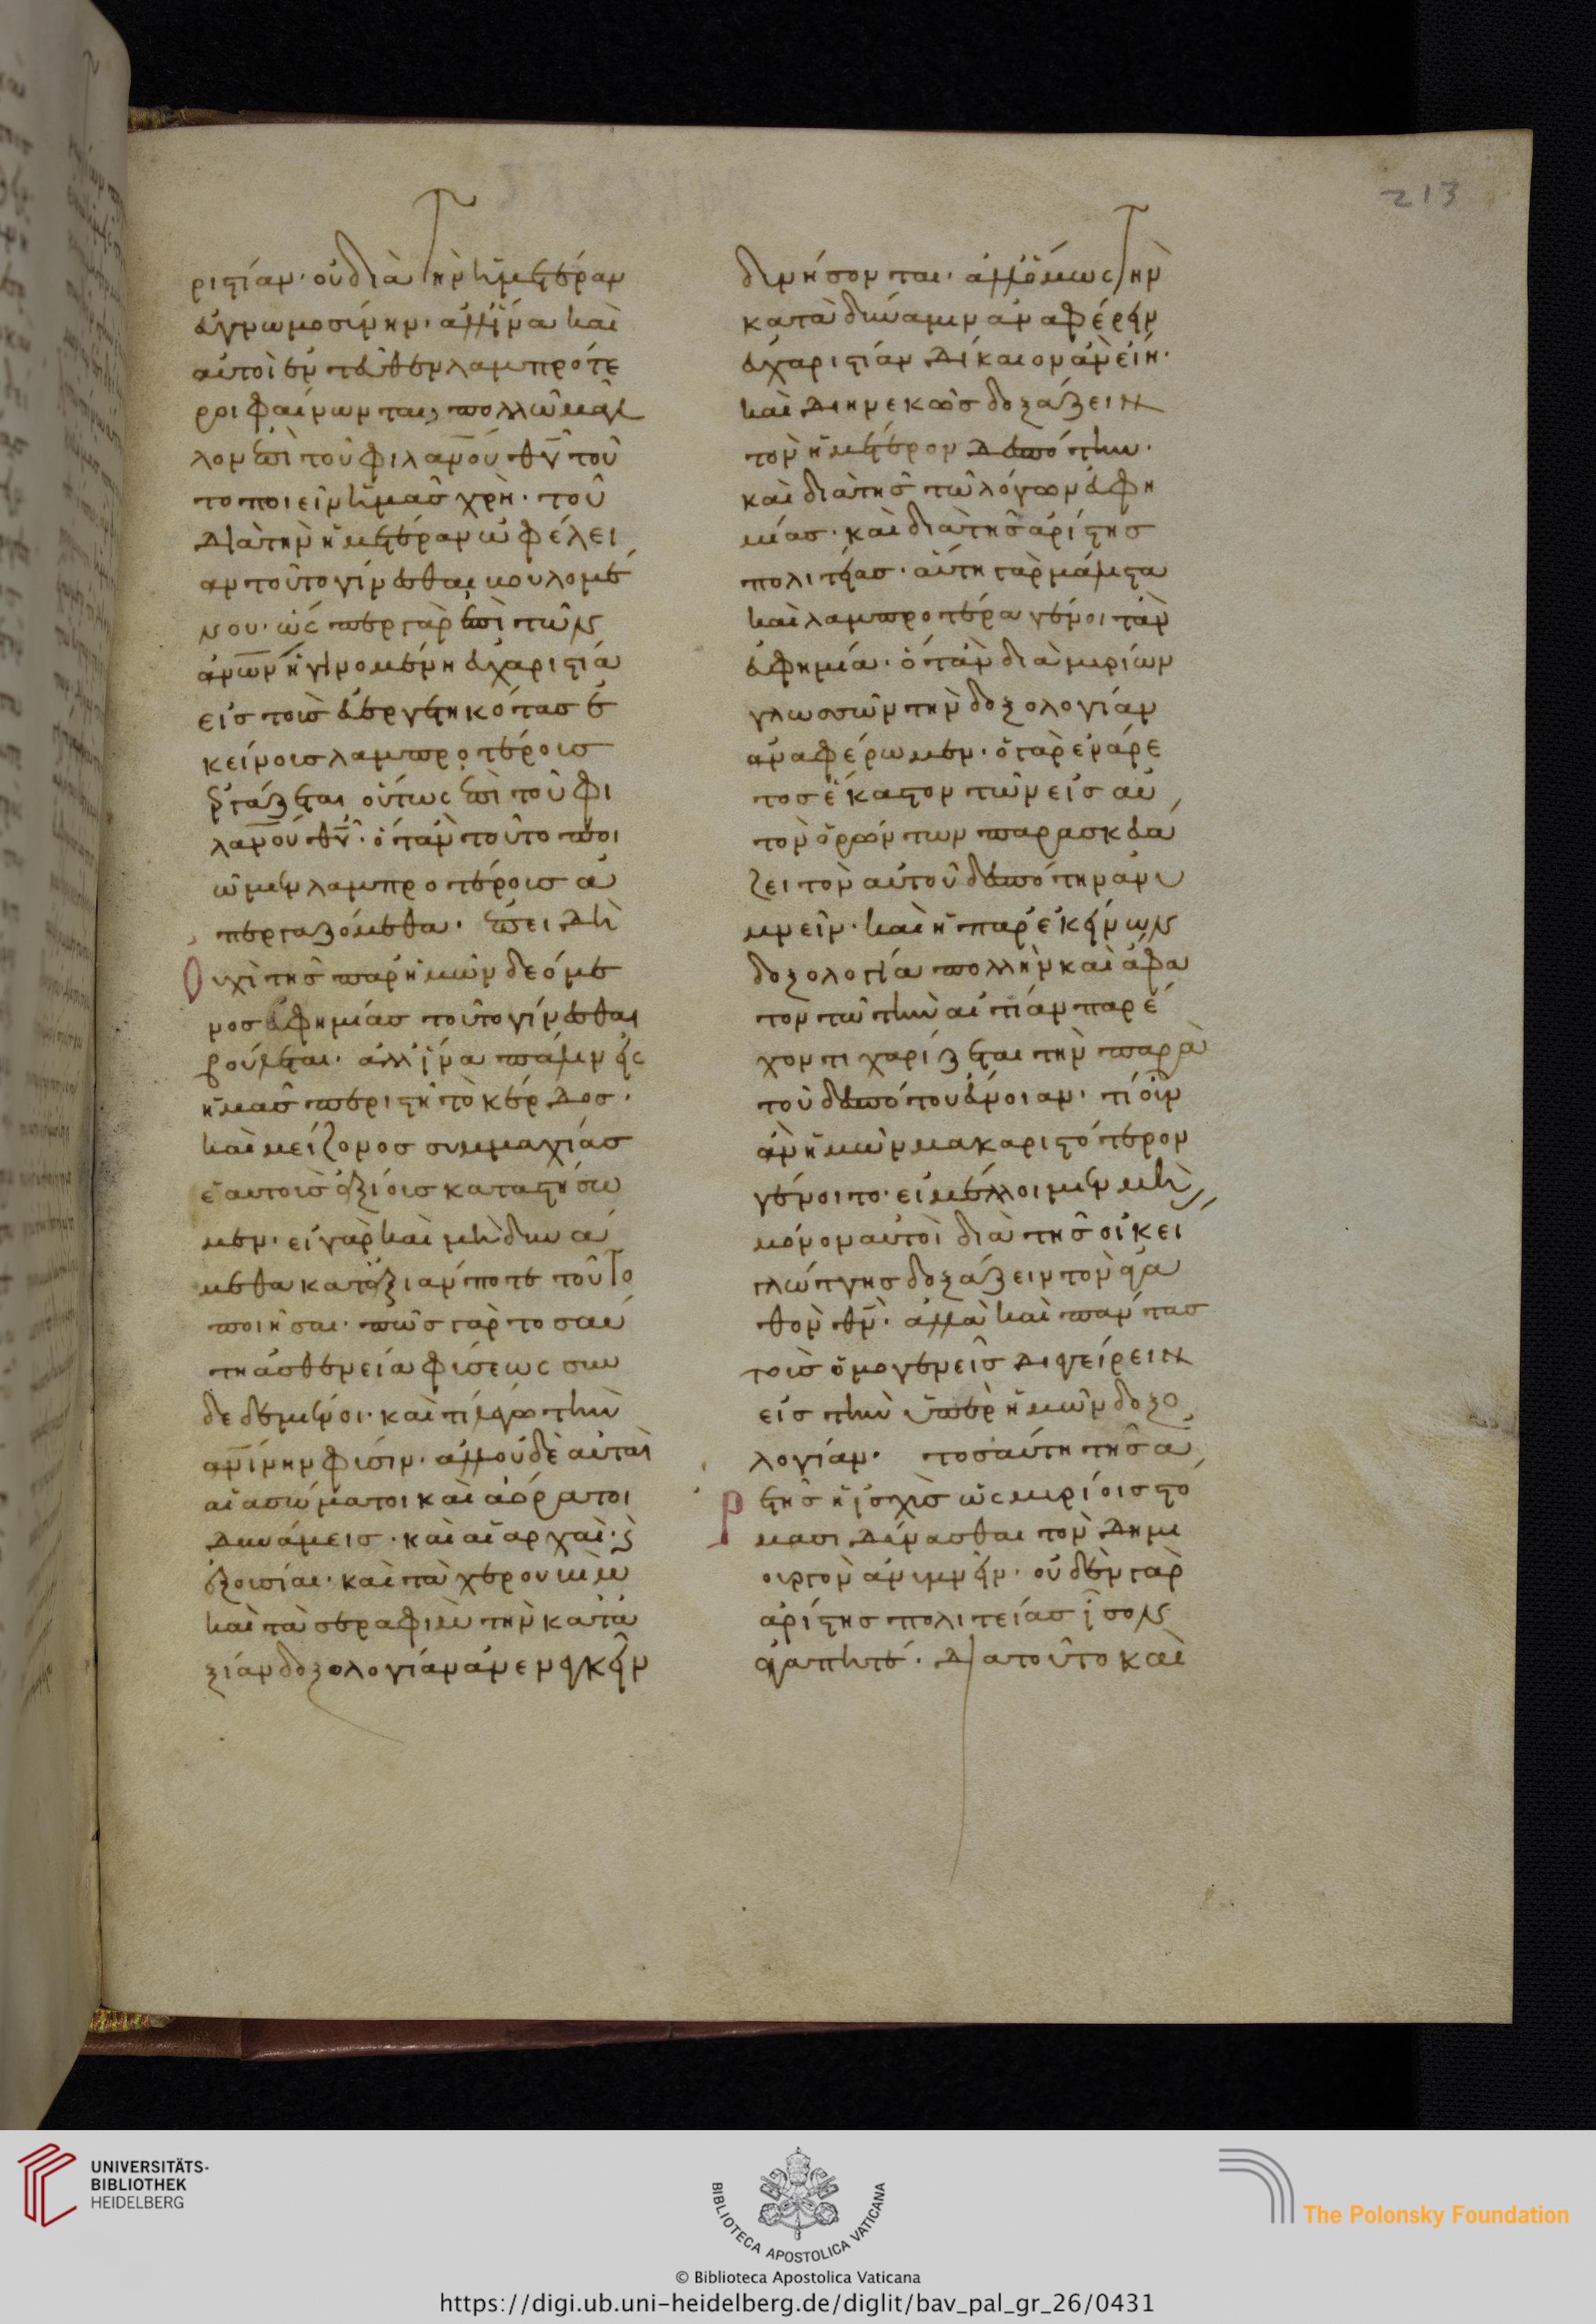 213
ριστίαν· οὐ διὰ τὴν ἡμετέραν
εὐγνωμοσύνην· ἀλλ' ἵνα καὶ
αὐτοὶ ἐντεῦθεν λαμπρότε
ροι φαίνωνται, πολλῶ μᾶλ
λον ἐπὶ τοῦ φιλανου θυ τοῦ
το ποιεῖν ἡμᾶς χρὴ· τοῦ
διὰ τὴν ἡμετέραν ὠφέλει
αν τοῦτο γίνεσθαι βουλομέ
νου· ὥσπερ γὰρ ἐπὶ τῶν
ανων ἡ γινομένη εὐχαριστία
εἰς τοὺς εὐεργετηκότας ἐ
κείνοις λαμπροτέροις
ἐργάζεται οὕτως ἐπὶ τοῦ φι
λανου θυ· ὅταν τοῦτο ποι
ῶμεν λαμπροτέροις ἀ
περγαζόμεθα· ἐπειδὴ
Οὐχὶ τῆς παρ' ἡμῶν δεόμε
νος εὐφημίας τοῦτο γίνεσθαι
βούλεται· ἀλλ' ἵνα πάλιν εἰς
ἡμᾶς περιστῆ τὸ κέρδος·
καὶ μείζονος συμμαχίας
ἑαυτοὺς ἀξίους καταστήσω
μεν· εἰ γὰρ καὶ μὴ δυνά
μεθα κατ' ἀξίαν ποτὲ τοῦτο
ποιῆσαι· πῶς γὰρ τοσαύ
τη ἀσθενεία φύσεως συν
δεδεμένοι· καὶ τί λέγω τὴν
ανινην φύσιν· ἀλλ' οὐδὲ αὐταὶ
αἱ ἀσώματοι καὶ ἀόρατοι
δυνάμεις· καὶ αἱ ἀρχαὶ· καὶ
ἐξουσίαι· καὶ τὰ χερουβὶμ
καὶ τὰ σεραφὶμ τὴν κατ' ἀ
ξίαν δοξολογίαν ἀνενεγκεῖν
δυνήσονται· ἀλλ' ὅμως τὴν
κατὰ δύναμιν ἀναφέρειν
εὐχαριστίαν δίκαιον ἂν εἴη·
καὶ διηνεκῶς δοξάζειν
τὸν ἡμέτερον δεσπότην·
καὶ διὰ τῆς τῶν λόγων εὐφη
μίας· καὶ διὰ τῆς ἀρίστης
πολιτείας· αὕτη γὰρ μάλιστα
καὶ λαμπροτέρα γένοιτ' ἂν
εὐφημία· ὅταν διὰ μυρίων
γλωσσῶν τὴν δοξολογίαν
ἀναφέρωμεν· ὁ γὰρ ἐνάρε
τος ἕκαστον τῶν εἰς αὐ
τὸν ὁρώντων παρασκευά
ζει τὸν αὐτοῦ δεσπότην ἀνυ
μνεῖν· καὶ ἡ παρ' ἐκείνων
δοξολογία πολλὴν καὶ ἄφα
τον τῶ τὴν αἰτίαν παρέ
χοντι χαρίζεται τὴν παρὰ
τοῦ δεσπότου εὔνοιαν· τί οὖν
ἂν ἡμῶν μακαριστότερον
γένοιτο· εἰ μέλλοιμεν μὴ
μόνον αὐτοὶ διὰ τῆς οἰκεί
γλώττης δοξάζειν τὸν ἀγα
θὸν θν· ἀλλὰ καὶ πάντας
τοὺς ὁμογενεῖς διεγείρειν
εἰς τὴν ὑπὲρ ἡμῶν δοξο
λογίαν· τοσαύτη τῆς ἀ
ρετῆς ἡ ἰσχὺς ὡς μυρίοις στό
μασι δύνασθαι τὸν δημι
ουργὸν ἀνυμνεῖν· οὐδὲν γὰρ
ἀρίστης πολιτείας ἴσον
ἀγαπητέ· διὰ τοῦτο καὶ
UNIVERSITÄTS-
BIBLIOTHEK
HEIDELBERG
BIBLIOTECA APOSTOLICA VATICANA
The Polonsky Foundation
© Biblioteca Apostolica Vaticana
https://digi.ub.uni-heidelberg.de/diglit/bav_pal_gr_26/0431